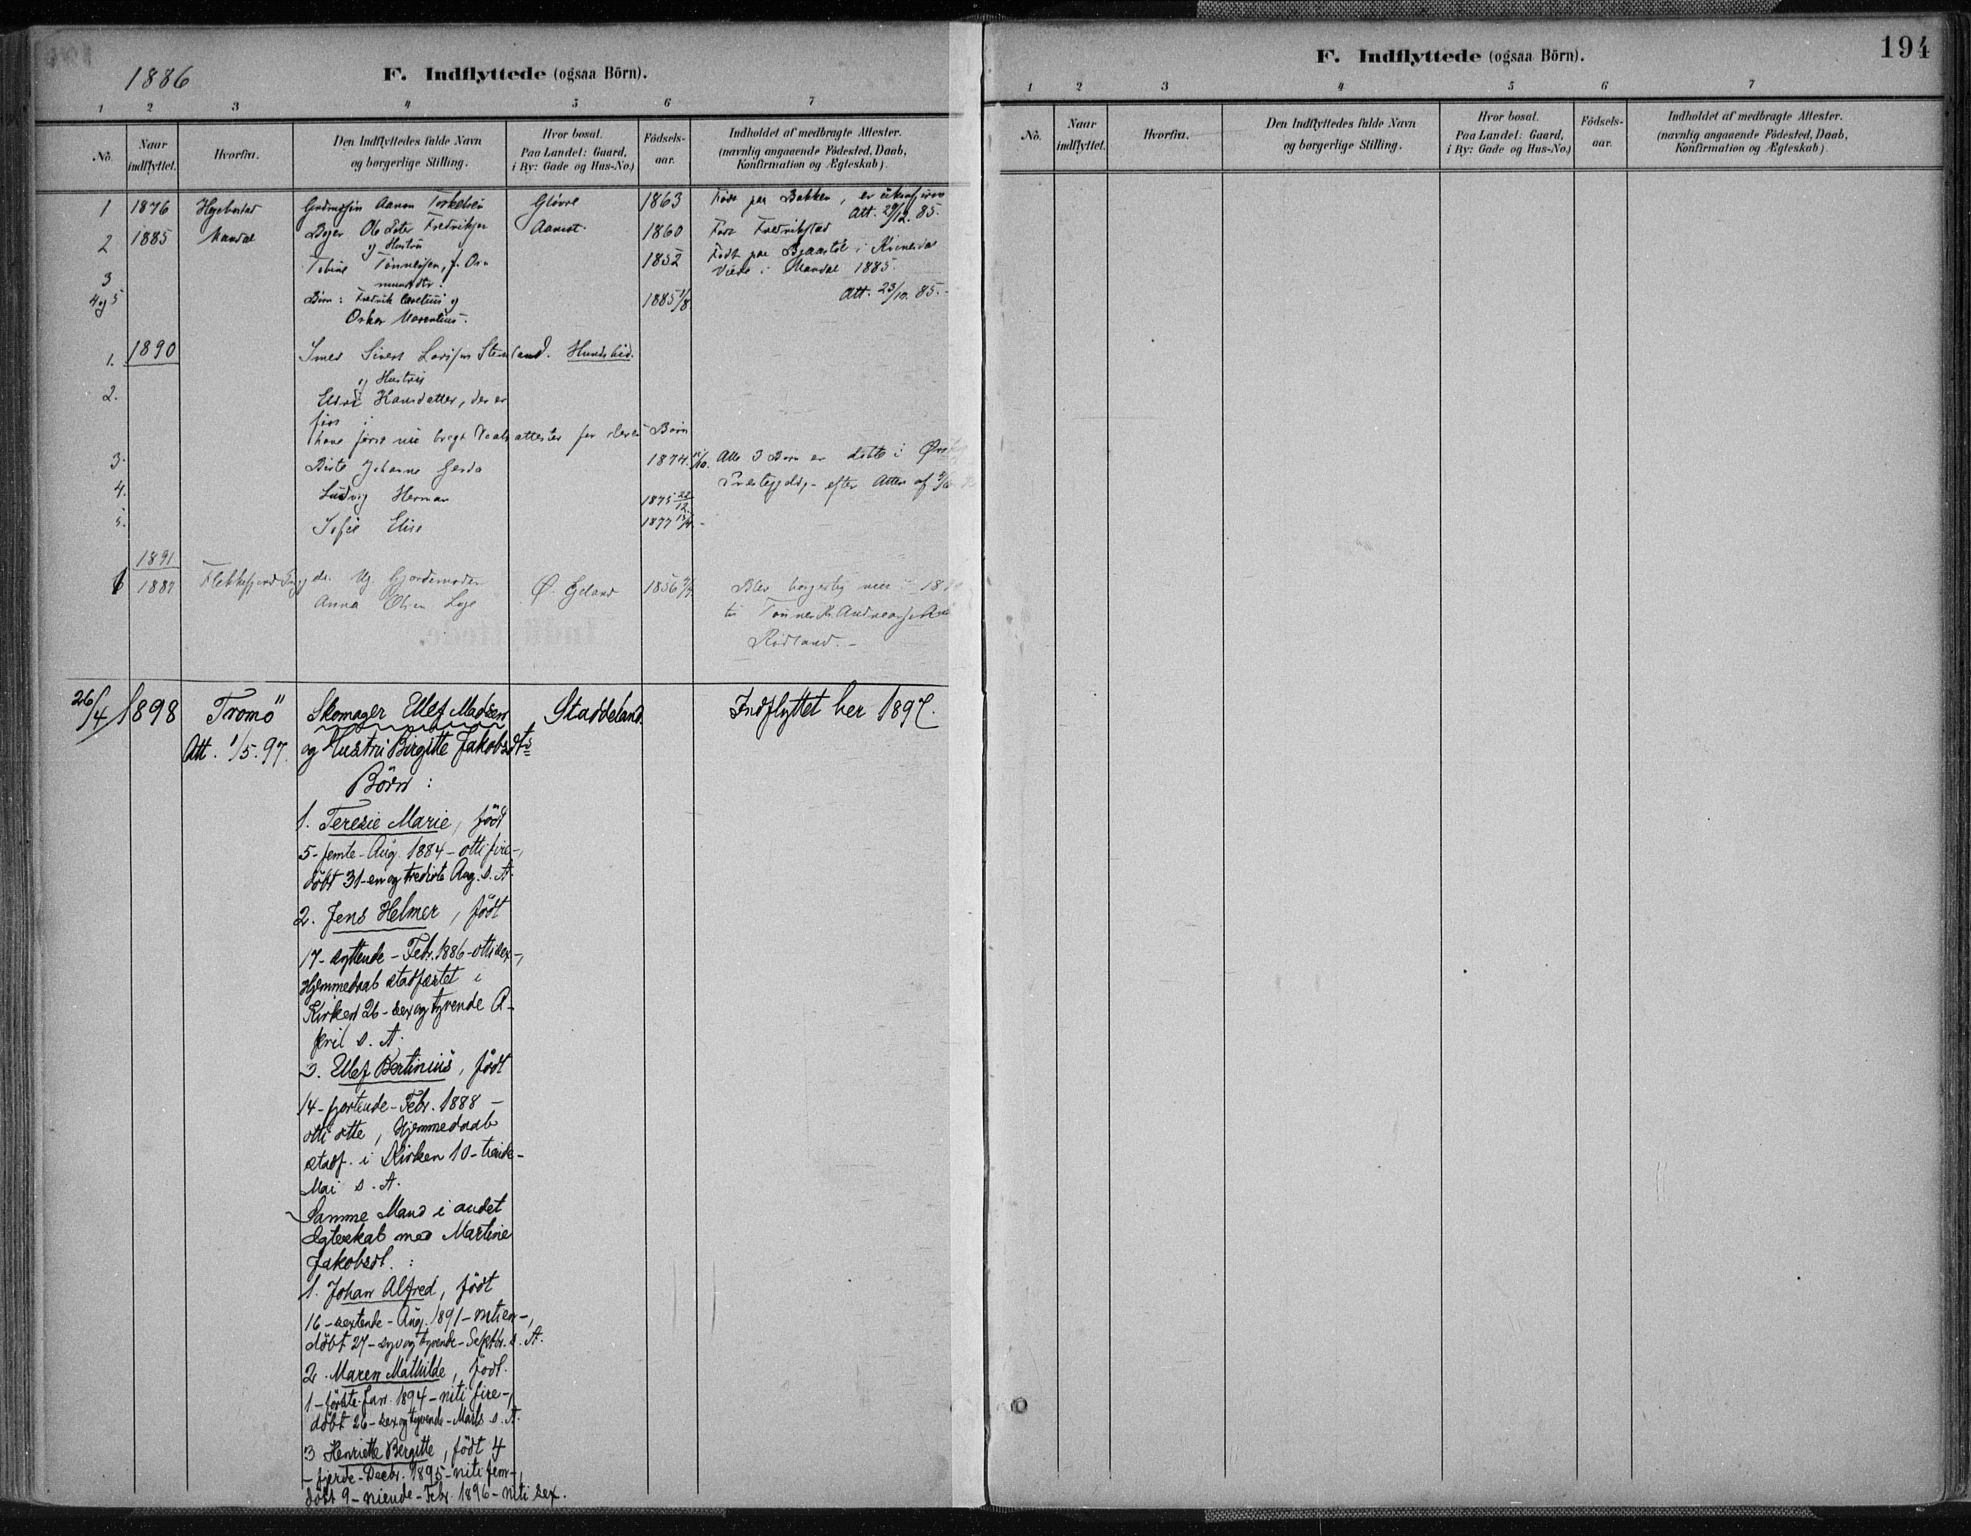 1886
F. Indflyttede (ogsaa Börn).
1 2 3 4 5 6 7
No.
Naar indflyttet.
Hvorfra.
Den Indflyttedes fulde Navn og borgerlige Stilling.
Hvor bosat. Paa Landet: Gaard, i By: Gade og Hus-No.)
Födsels-aar.
Indholdet af medbragte Attester. (navnlig angaaende Födested, Daab, Konfirmation og Ægteskab).
1 1876 Aanen Torkelsen 1863 Född paa Bakken, er
Att. 29/12. 85.
2 1885 Mandal Fredriksen 1860 Født Fredrikstad
og Hustru
Tobine Tønnesen, f. 1852 Født paa i
3 Viede i Mandal 1885.
4 og 5 Börn: Fredrik og 1885 1/8 Att. 23/10. 85.
Oskar
1. 1890 Sivert
og Hustru
2. Hansdatter, der er
først i
have først nu bragt Daabsattester for deres Børn
3. Johanne 1874. Alle 3 Børn er døbte i
4. Ludvig Herman 1875 22/12 efter Attest af
5. Sofie Elise 1877
1891
1887 Gjordemoder Ø. Egeland 1856 Blev borgerlig viet
Anna Olsen til
Rødland.
26/4 1898 Tromö Skomager Ellef Madsen Staddeland Indflyttet her 1897.
Att. 1/5. 97. og Hustru Birgitte Jakobsdt:s
Börn:
1. Teresie Marie, födt
5-femte-Aug. 1884-otti fire-,
döbt 31-en og tredivte Aug. s. A.
2. Jens Helmer, födt
17-syttende-Febr. 1886-otti sex-,
Hjemmedaab stadfæstet i
Kirken 26-sex og tyvende A-
pril s. A.
3. Ellef Bertinius, födt
14-fjortende-Febr. 1888-
otti otte, Hjemmedaab
stadf. i Kirken 10-tiende-
Mai s. A.
Samme Mand i andet
Egteskab med Martine
Jakobsdt.:
1. Johan Alfred, födt
16-sextende-Aug. 1891-niti en-,
döbt 27-syv og tyvende-Septbr. s. A.
2. Maren Mathilde, födt
1-förste-Jan. 1894-niti fire-,
döbt 26-sex og tyvende-Marts s. A.
3 Henriette Bergitte, födt 4
-fjerde-Decbr. 1895-niti fem-,
döbt 9-niende-Febr. 1896-niti sex.
194
F. Indflyttede (ogsaa Börn).
1 2 3 4 5 6 7
No.
Naar indflyttet.
Hvorfra.
Den Indflyttedes fulde Navn og borgerlige Stilling.
Hvor bosat. Paa Landet: Gaard, i By: Gade og Hus-No.)
Födsels-aar.
Indholdet af medbragte Attester. (navnlig angaaende Födested, Daab, Konfirmation og Ægteskab).